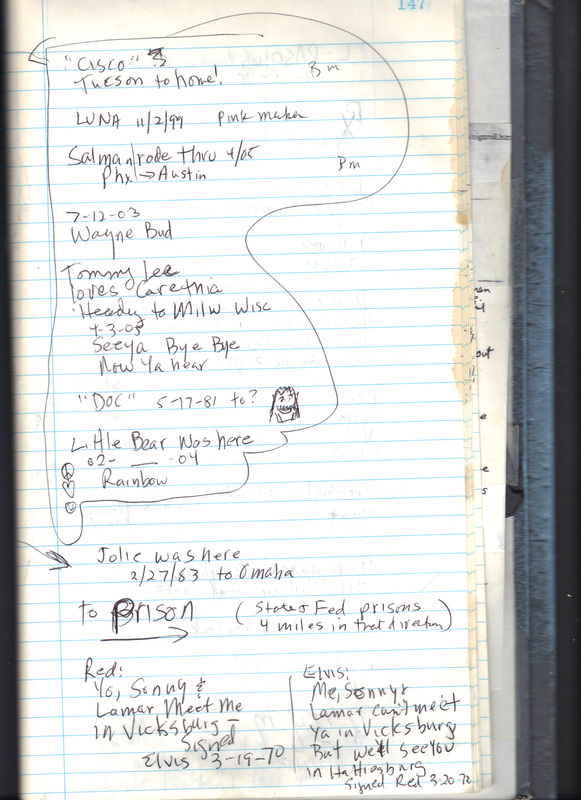 147
"CISCO"
Tucson to home!
Bm
LUNA 11/2/99 Pink maker
Salman rode thru 4/05
Phx → Austin
Bm
7-12-03
Wayne Bud
Tommy Lee
loves Carethia
Heady to Milw Wisc
4-3-03
Seeya Bye Bye
Now Ya hear
"DOC" 5-17-81 to?
Little Bear Was here
02- __ -04
Rainbow
Jolie was here
2/27/83 to Omaha
to Prison (State & Fed prisons
4 miles in that direction)
Red:
Yo, Sonny &
Lamar Meet Me
in Vicksburg –
Signed
Elvis 3-19-70
Elvis:
Me, Sonny &
Lamar can't meet
Ya in Vicksburg
But we'll see you
in Hattiesburg
Signed Red 3-20-70